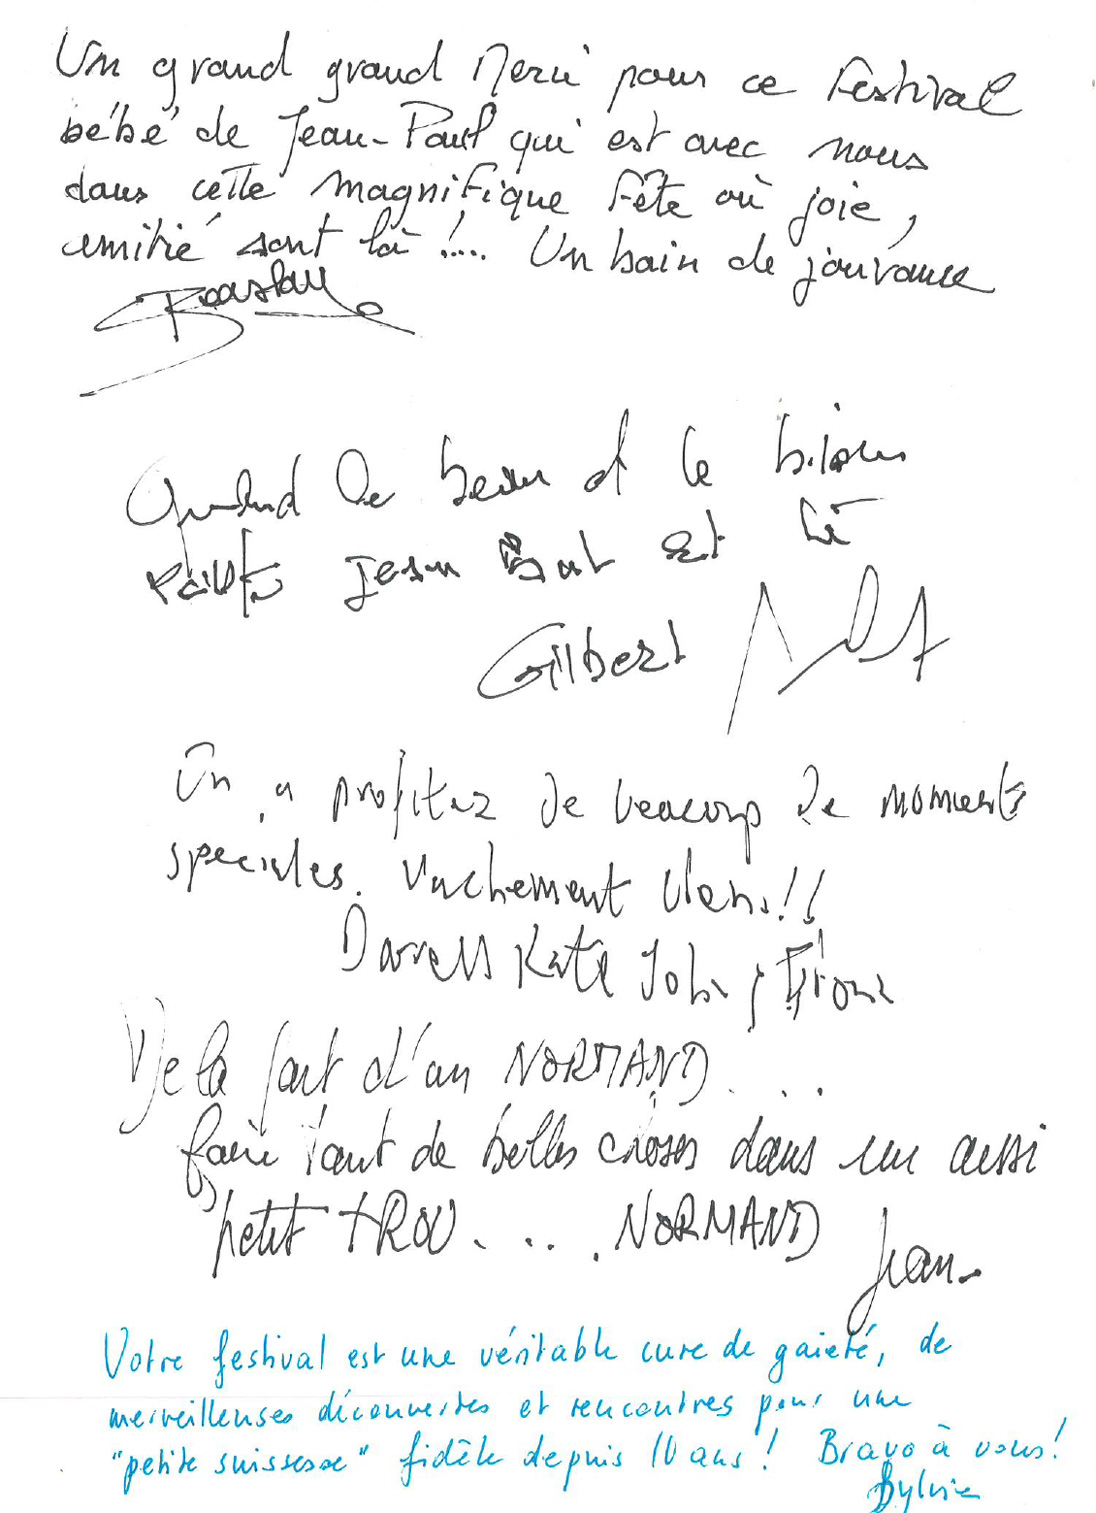 Un grand grand Merci pour ce Festival
bébé de Jean-Paul qui est avec nous
dans cette magnifique Fête où joie,
amitié sont là !.... Un bain de jouvance
Quand le beau et le bijou
Jean Paul est là
Gilbert
On a profitez de beacoup de moments
speciales. Vachement biens!!
Darrell Kate John
De la part d'un NORMAND....
faire tant de belles choses dans un aussi
petit TROU.... NORMAND
Jean.
Votre festival est une véritable cure de gaieté, de
merveilleuses découvertes et rencontres pour une
"petite suissesse" fidèle depuis 10 ans! Bravo à vous!
Sylvie